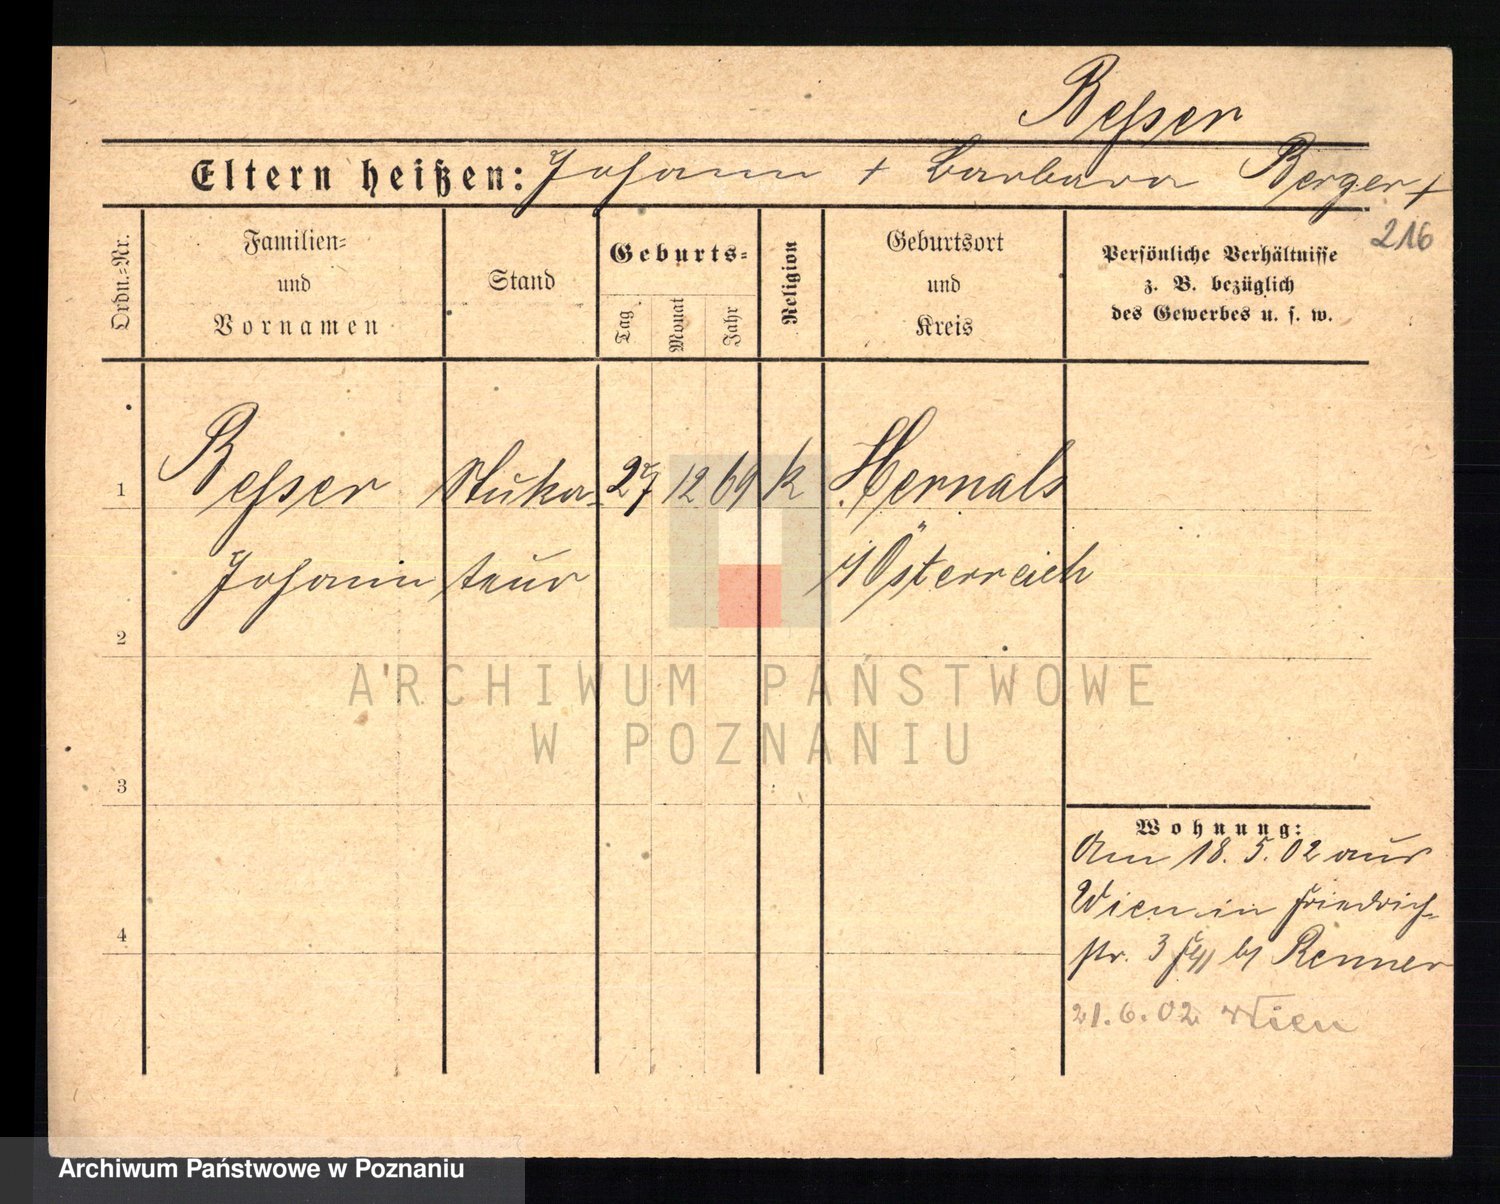 Besser
Eltern heißen: Johann + Barbara Berger +
216
Ordn.-Nr.
Familien-
und
Vornamen
Stand
Geburts-
Tag
Monat
Jahr
Religion
Geburtsort
und
Kreis
Persönliche Verhältnisse
z. B. bezüglich
des Gewerbes u. s. w.
1
Besser
Johann
Stuka-
teur
27 12 69 k
Hernals
Österreich
2
3
4
ARCHIWUM PAŃSTWOWE
W POZNANIU
Wohnung:
Am 18. 5. 02 aus
Wien in Friedrich-
str. 3 b/ Renner
21. 6. 02 Wien
Archiwum Państwowe w Poznaniu